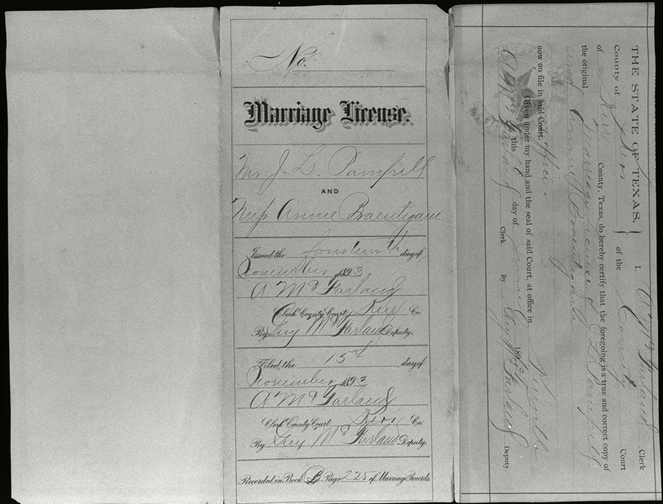 No.
Marriage License.
Mr J. L. Pampell
AND
Miss Annie Baentgane
Issued the fourteenth day of
November 1893
A McFarland
Clerk County Court Kerr Co.
By Guy McFarland Deputy.
Filed the 15th day of
November 1893
A McFarland
Clerk County Court Kerr Co.
By Guy McFarland Deputy.
Recorded in Book B. Page 225 of Marriage Records
THE STATE OF TEXAS,
County of
I, A McFarland Clerk
of the County Court
of County, Texas, do hereby certify that the foregoing is a true and correct copy of
the original Marriage License J L Pampell
and Annie
now on file in said Court.
Given under my hand and the seal of said Court, at office in Kerrville
this day of 189
A McFarland Clerk. By Guy McFarland Deputy.